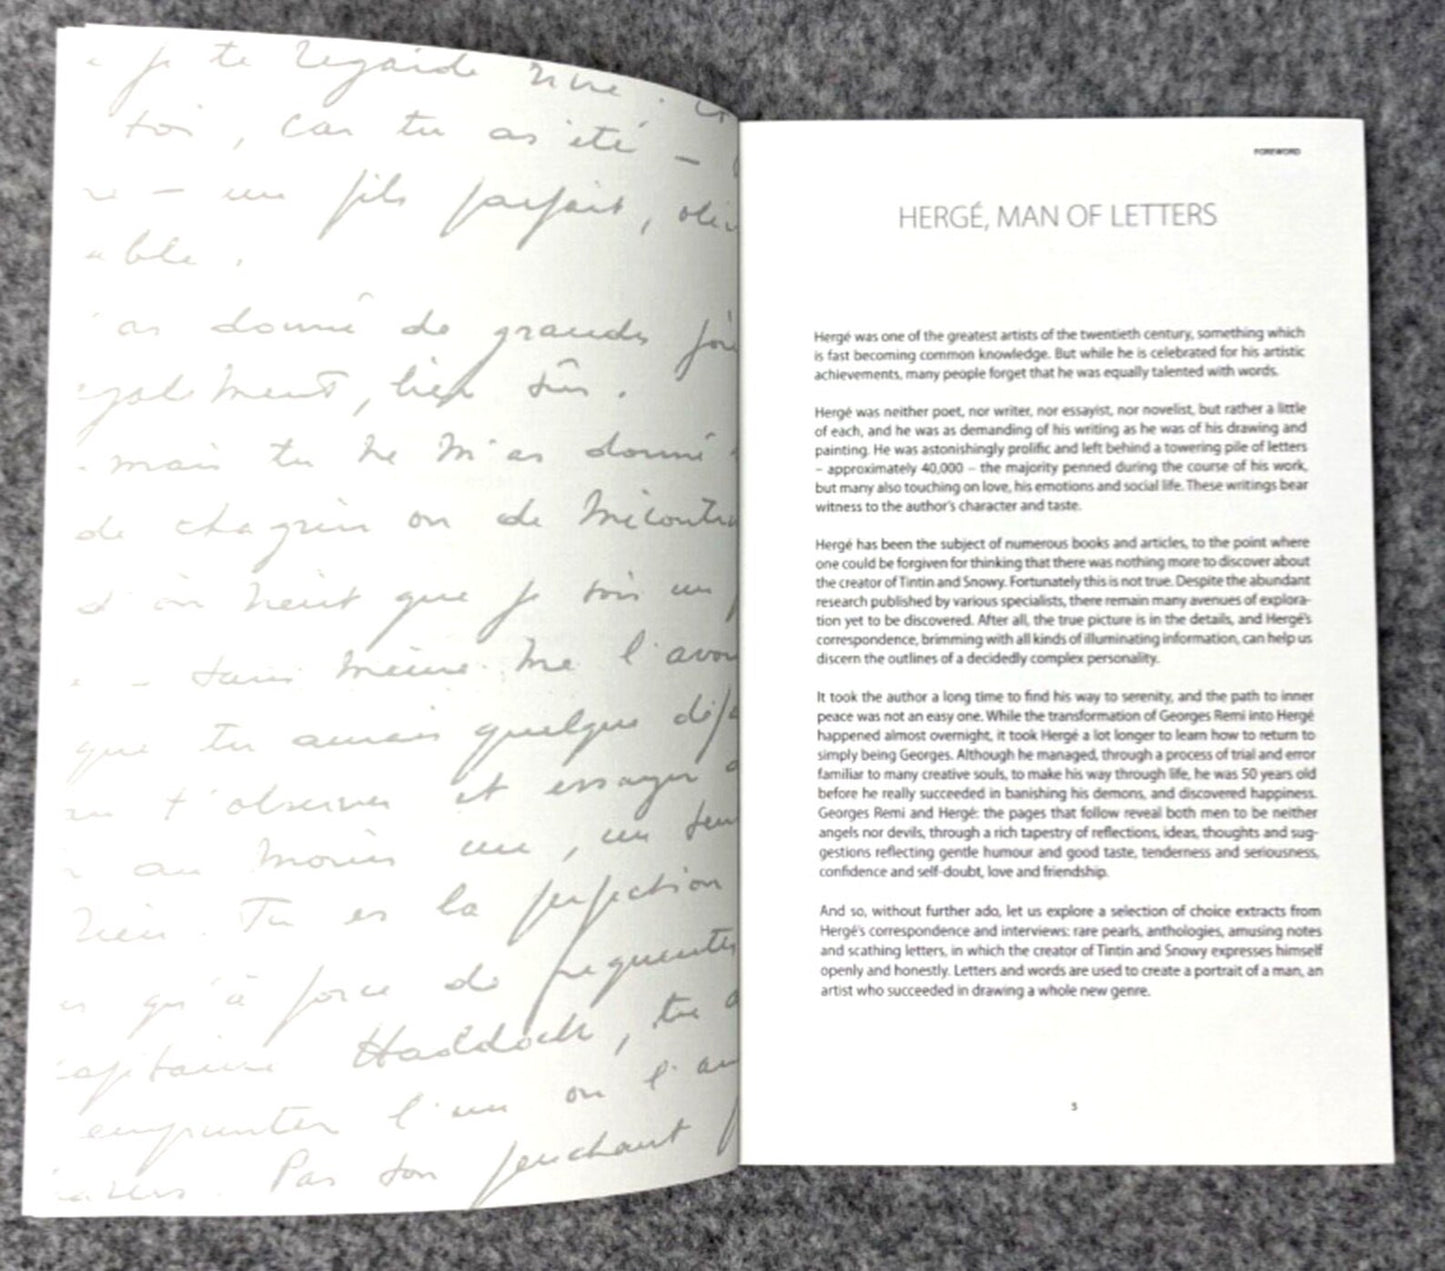 je te regarde vivre.
toi, car tu as été –
– un fils parfait,
able.
as donné de grandes
également, bien sûr.
mais tu ne m'as donné
de chagrin ou de
d'où vient que je sois un
– sans même me l'avou
que tu aurais quelque
t'observer et essayer
au moins un, un seul
rien. Tu es la perfection
qu'à force de fréquenter
capitaine Haddock, tu
emprunter l'un ou l'au
Pas son penchant
FOREWORD
HERGÉ, MAN OF LETTERS
Hergé was one of the greatest artists of the twentieth century, something which
is fast becoming common knowledge. But while he is celebrated for his artistic
achievements, many people forget that he was equally talented with words.
Hergé was neither poet, nor writer, nor essayist, nor novelist, but rather a little
of each, and he was as demanding of his writing as he was of his drawing and
painting. He was astonishingly prolific and left behind a towering pile of letters
– approximately 40,000 – the majority penned during the course of his work,
but many also touching on love, his emotions and social life. These writings bear
witness to the author's character and taste.
Hergé has been the subject of numerous books and articles, to the point where
one could be forgiven for thinking that there was nothing more to discover about
the creator of Tintin and Snowy. Fortunately this is not true. Despite the abundant
research published by various specialists, there remain many avenues of explora-
tion yet to be discovered. After all, the true picture is in the details, and Hergé's
correspondence, brimming with all kinds of illuminating information, can help us
discern the outlines of a decidedly complex personality.
It took the author a long time to find his way to serenity, and the path to inner
peace was not an easy one. While the transformation of Georges Remi into Hergé
happened almost overnight, it took Hergé a lot longer to learn how to return to
simply being Georges. Although he managed, through a process of trial and error
familiar to many creative souls, to make his way through life, he was 50 years old
before he really succeeded in banishing his demons, and discovered happiness.
Georges Remi and Hergé: the pages that follow reveal both men to be neither
angels nor devils, through a rich tapestry of reflections, ideas, thoughts and sug-
gestions reflecting gentle humour and good taste, tenderness and seriousness,
confidence and self-doubt, love and friendship.
And so, without further ado, let us explore a selection of choice extracts from
Hergé's correspondence and interviews: rare pearls, anthologies, amusing notes
and scathing letters, in which the creator of Tintin and Snowy expresses himself
openly and honestly. Letters and words are used to create a portrait of a man, an
artist who succeeded in drawing a whole new genre.
5